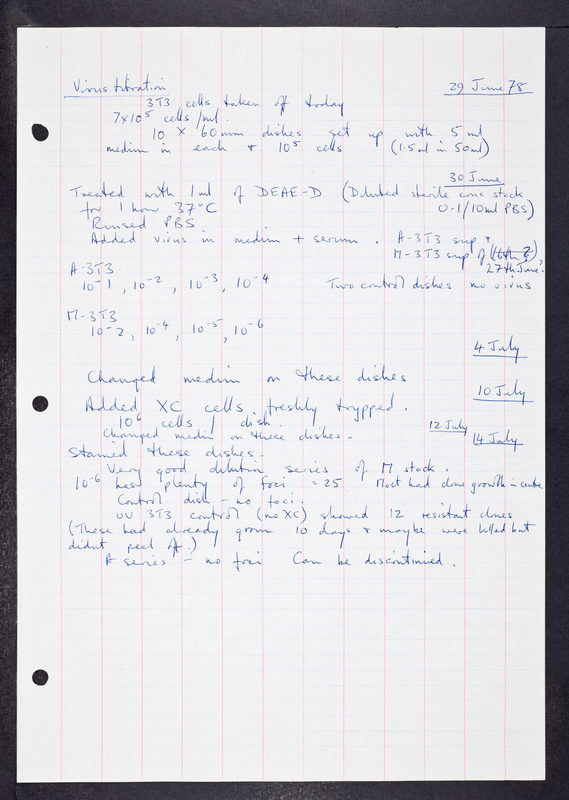 Virus titration 29 June 78
3T3 cells taken off today
7x10⁵ cells/ml.
10 x 60mm dishes set up with 5ml
medium in each + 10⁵ cells (1.5ml in 50ml)
30 June
Treated with 1ml of DEAE-D (Diluted sterile conc stock
for 1 hour 37°C 0.1/10ml PBS)
Rinsed PBS
Added virus in medium + serum. A-3T3 sup +
M-3T3 sup of
27th June.
A-3T3
10⁻¹, 10⁻², 10⁻³, 10⁻⁴ Two control dishes no virus
M-3T3
10⁻², 10⁻⁴, 10⁻⁵, 10⁻⁶
4 July
Changed medium on these dishes
10 July
Added XC cells, freshly trypped.
10⁶ cells / dish.
Changed medium on these dishes. 12 July
14 July
Stained these dishes.
Very good dilution series of M stock.
10⁻⁶ has plenty of foci = 25 Most had clone growth in centre
Control dish - no foci.
UV 3T3 control (no XC) showed 12 resistant clones
(These had already grown 10 days + maybe were killed but
didnt peel off.)
A series - no foci Can be discontinued.